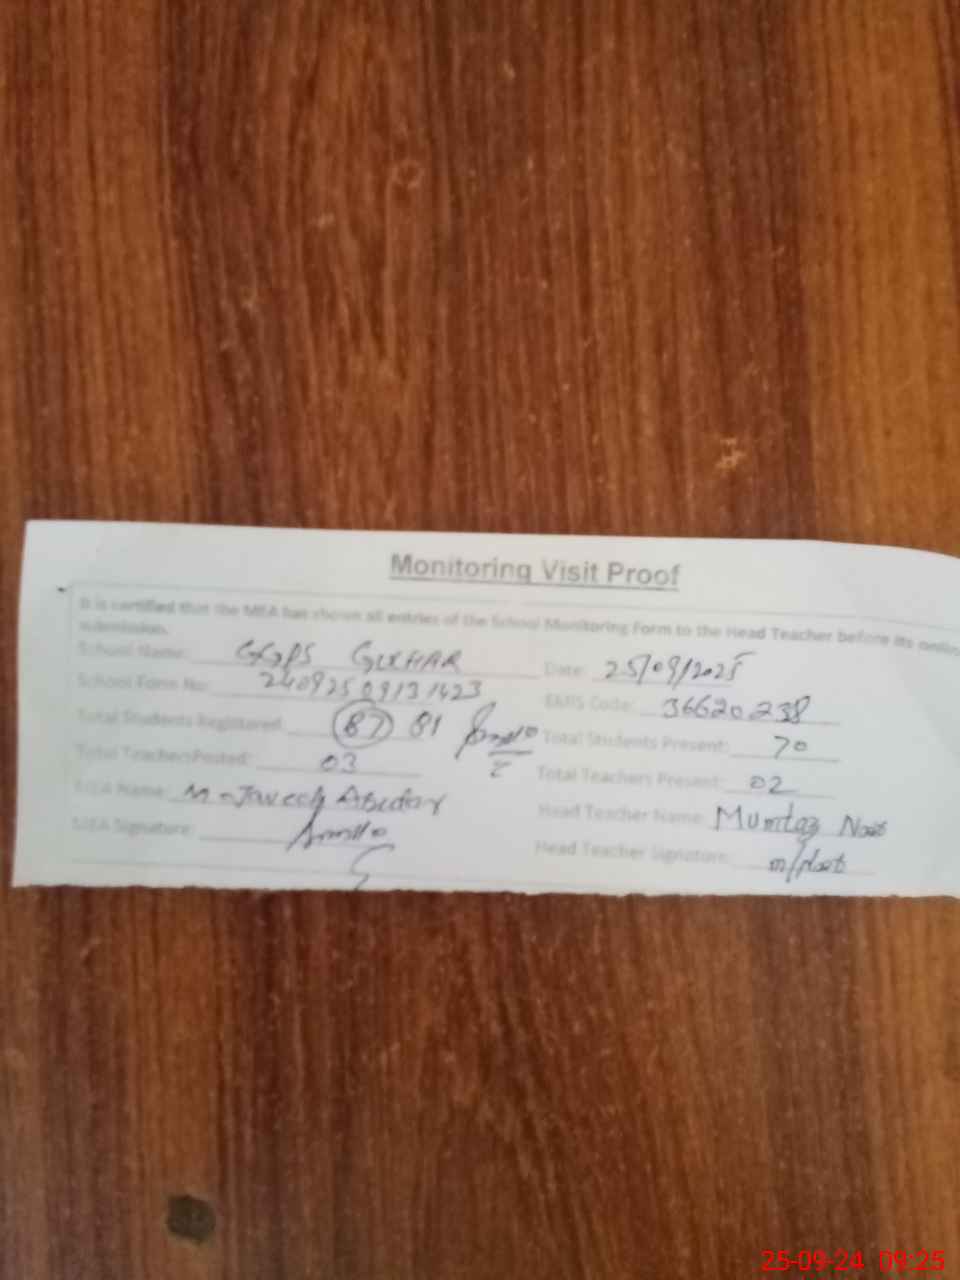 Monitoring Visit Proof
It is certified that the MEA has shown all entries of the School Monitoring Form to the Head Teacher before its online
submission.
School Name: GGPS Date: 25/09/2025
School Form No: 24092509131423 EMIS Code: 36620238
Total Students Registered: 87 81 Total Students Present: 70
Total Teachers Posted: 03 Total Teachers Present: 02
MEA Name: M. Head Teacher Name: Mumtaz
MEA Signature: Head Teacher Signature:
25-09-24 09:25